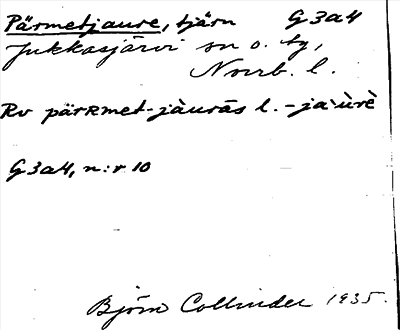 Pärmetjaure, tjärn G 3a4
Jukkasjärvi sn o. tg,
Norrb. l.
Rv pärʀmet-jàurās l. -ja`ùrè
G 3a4, n:r 10
Björn Collinder 1935.